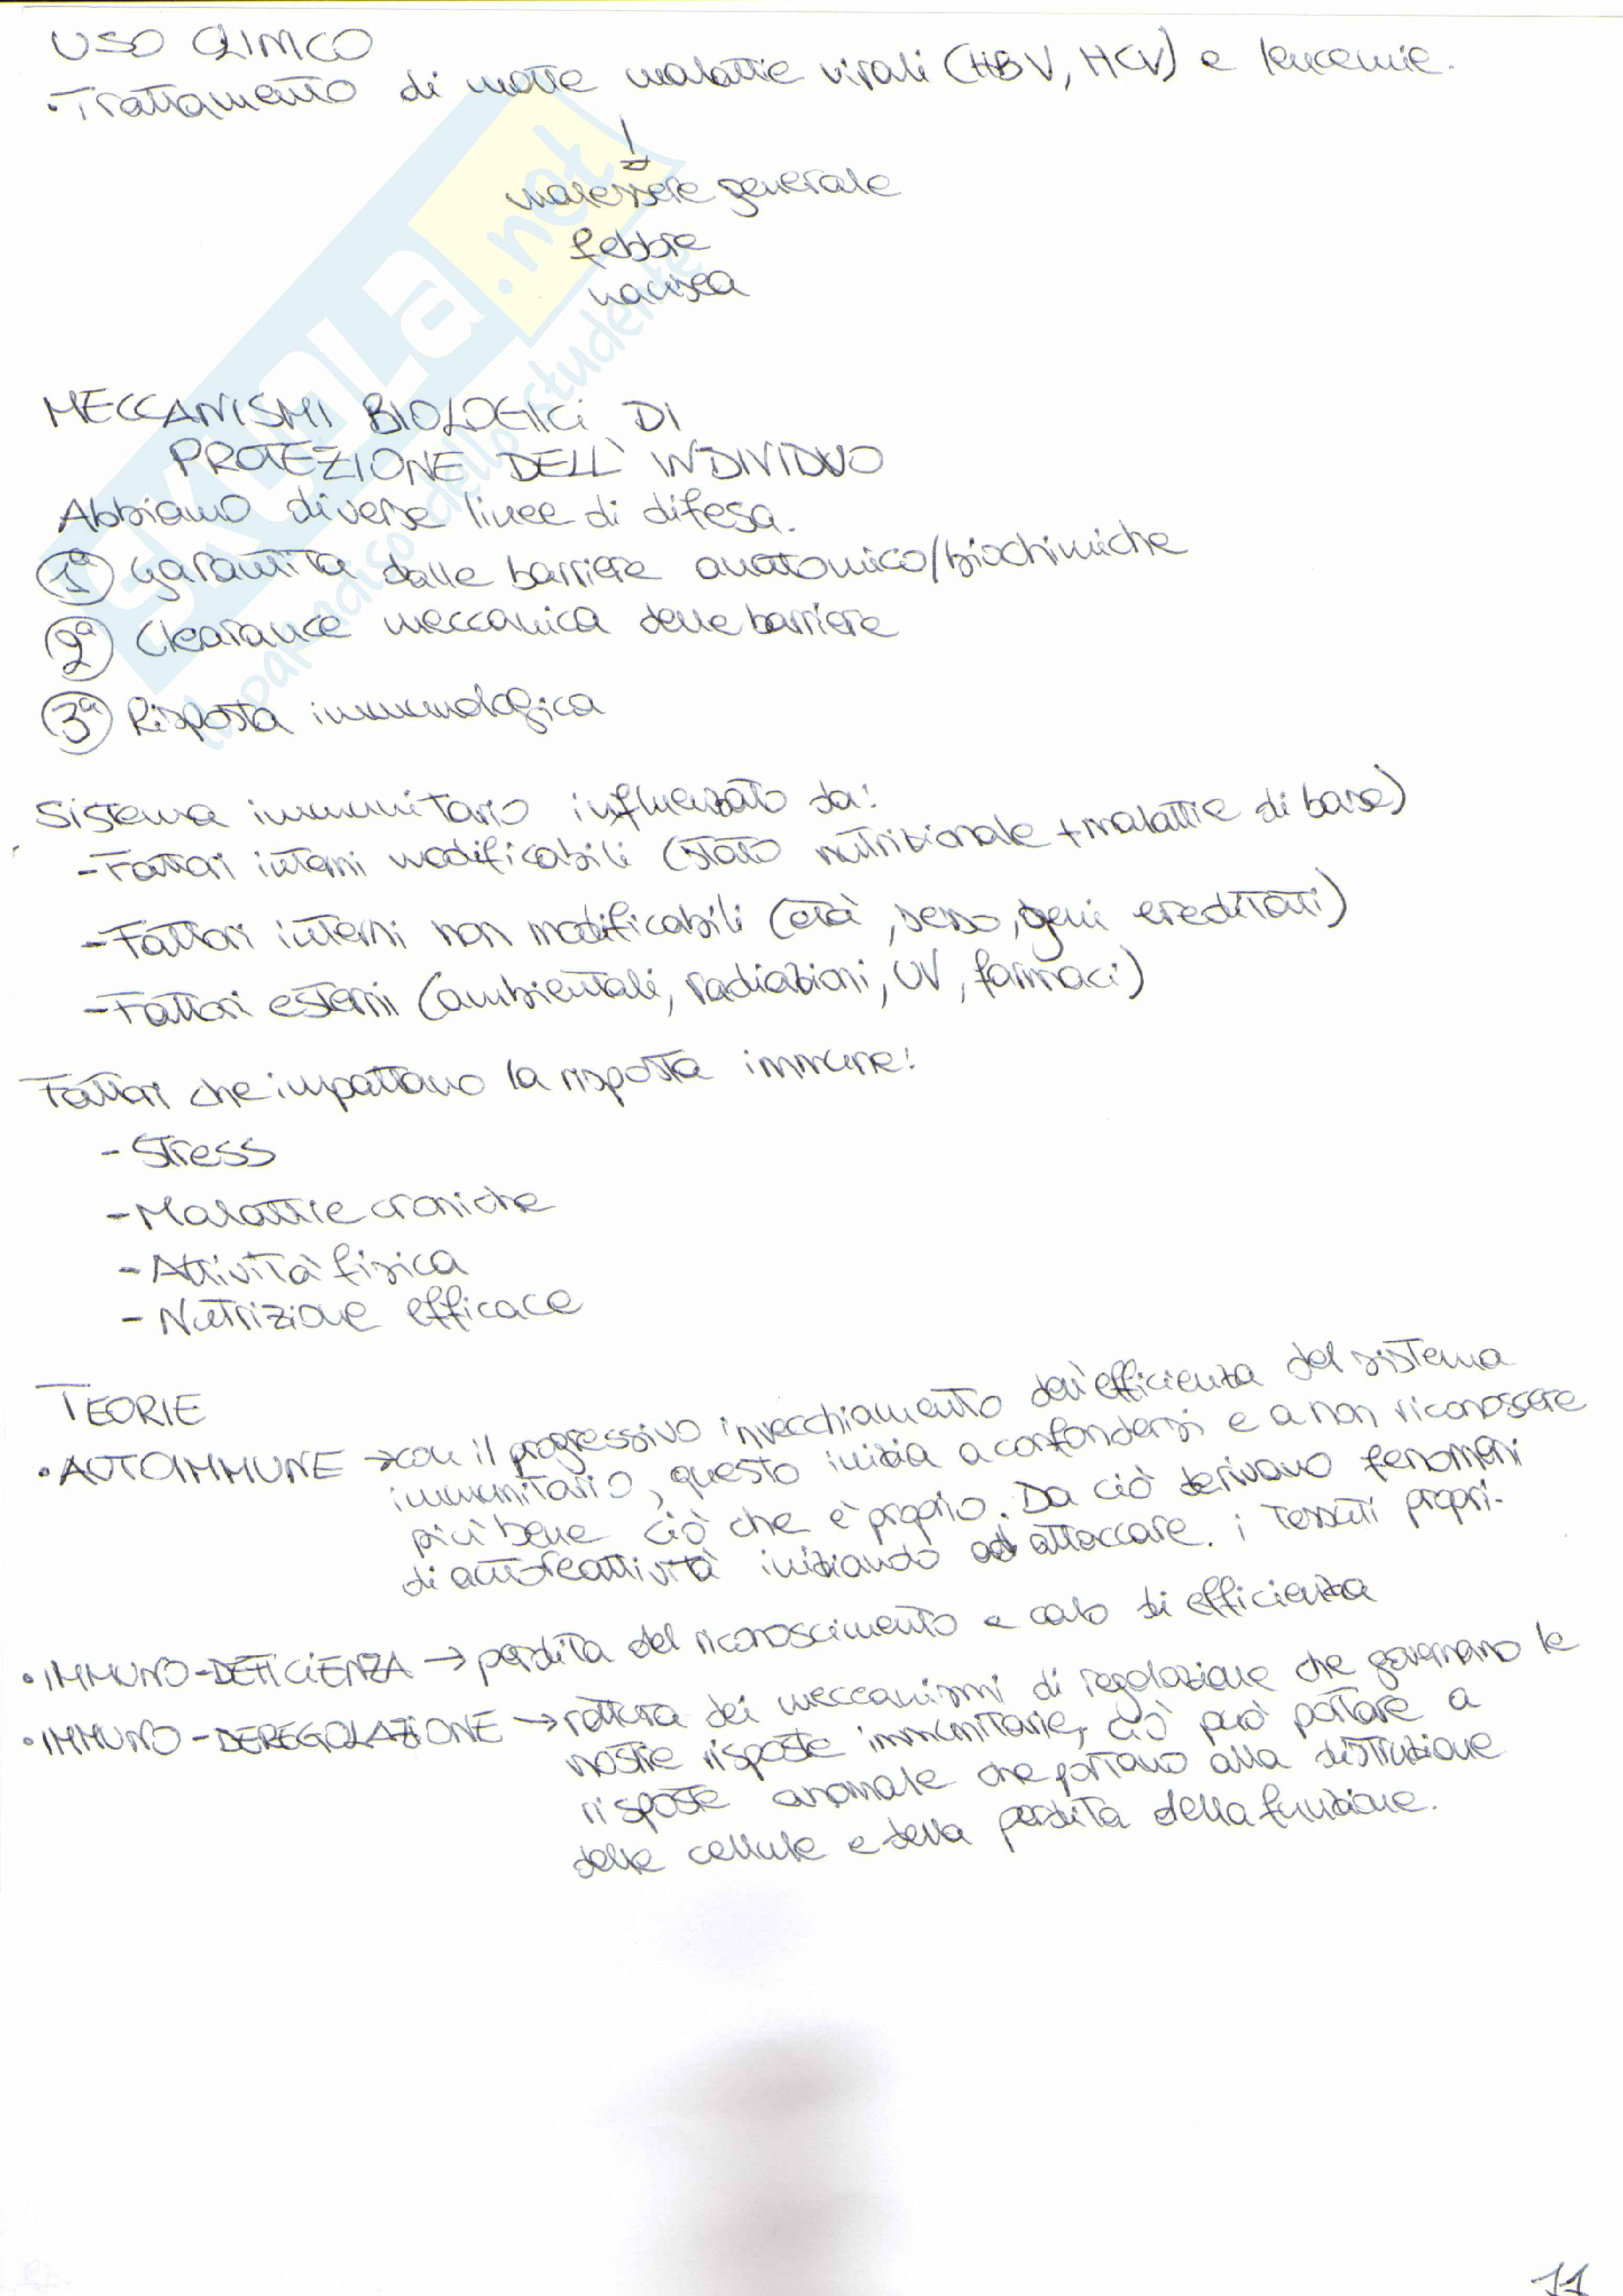 USO CLINICO
•Trattamento di molte malattie virali (HBV, HCV) e leucemie.
!
malessere generale
febbre
nausea
MECCANISMI BIOLOGICI DI
PROTEZIONE DELL'INDIVIDUO
Abbiamo diverse linee di difesa.
1ª garantita dalle barriere anatomico/biochimiche
2ª Clearance meccanica delle barriere
3ª Risposta immunologica
Sistema immunitario influenzato da:
-Fattori interni modificabili (stato nutrizionale + malattie di base)
-Fattori interni non modificabili (età, sesso, geni ereditati)
-Fattori esterni (ambientali, radiazioni, UV, farmaci)
Fattori che impattano la risposta immune:
- Stress
- Malattie croniche
- Attività fisica
- Nutrizione efficace
TEORIE
• AUTOIMMUNE → con il progressivo invecchiamento dell'efficienza del sistema
immunitario, questo inizia a confondersi e a non riconoscere
più bene ciò che è proprio. Da ciò derivano fenomeni
di autoreattività iniziando ad attaccare i tessuti propri.
• IMMUNO-DEFICIENZA → perdita del riconoscimento e calo di efficienza
• IMMUNO-DEREGOLAZIONE → rottura dei meccanismi di regolazione che governano le
nostre risposte immunitarie, ciò può portare a
risposte anomale che portano alla distruzione
delle cellule e della perdita della funzione.
SKUOLA.net
il paradiso dello studente
11